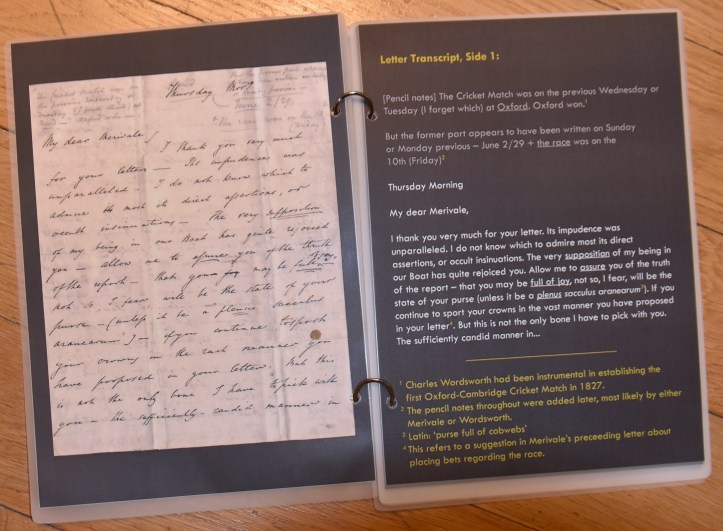 Thursday Morg
My dear Merivale,
I thank you very much
for your letter – Its impudence was
unparalleled – I do not know which to
admire its most its direct assertions, or
occult insinuations – The very supposition
of my being in our Boat has quite rejoiced
you – allow me to assure you of the truth
of the report – that your may be full of joy,
not so I fear will be the state of your
purse – (unless it be a plenus sacculus
aranearum) – If you continue to sport
your crowns in the manner you
have proposed in your letter. But this
is not the only bone I have to pick with
you – the sufficiently candid manner in
Letter Transcript, Side 1:
[Pencil notes] The Cricket Match was on the previous Wednesday or
Tuesday (I forget which) at Oxford. Oxford won.¹
But the former part appears to have been written on Sunday
or Monday previous – June 2/29 + the race was on the
10th (Friday)²
Thursday Morning
My dear Merivale,
I thank you very much for your letter. Its impudence was
unparalleled. I do not know which to admire most its direct
assertions, or occult insinuations. The very supposition of my being in
our Boat has quite rejoiced you. Allow me to assure you of the truth
of the report – that you may be full of joy, not so, I fear, will be the
state of your purse (unless it be a plenus sacculus aranearum³). If you
continue to sport your crowns in the vast manner you have proposed
in your letter⁴. But this is not the only bone I have to pick with you.
The sufficiently candid manner in...
¹ Charles Wordsworth had been instrumental in establishing the
first Oxford-Cambridge Cricket Match in 1827.
² The pencil notes throughout were added later, most likely by either
Merivale or Wordsworth.
³ Latin: 'purse full of cobwebs'
⁴ This refers to a suggestion in Merivale's preceeding letter about
placing bets regarding the race.